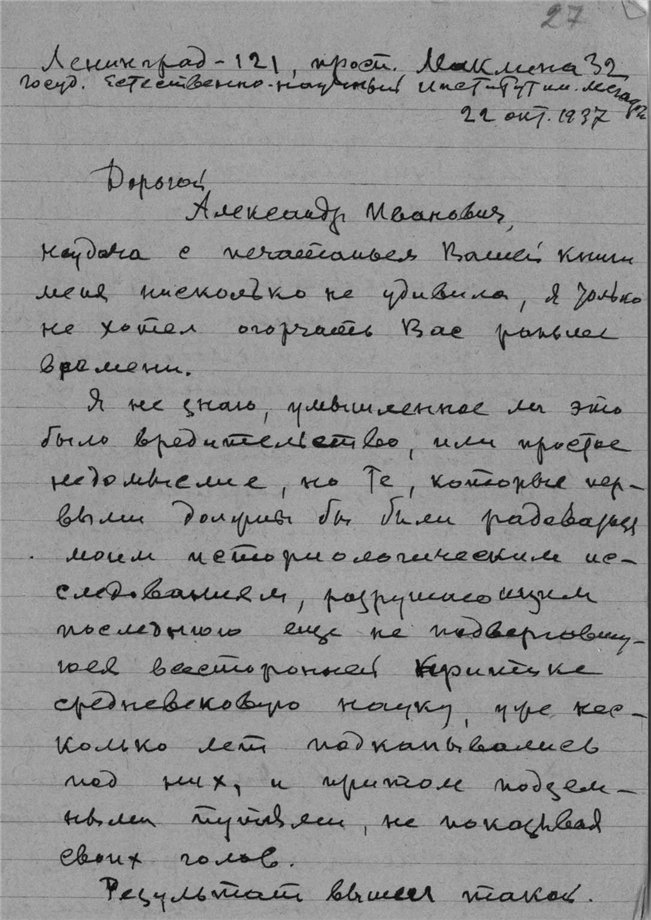 27
Ленинград-121, просп. Маклина 32
Госуд. Естественно-научный институт им. Лесгафта
22 окт. 1937
Дорогой
Александр Иванович,
неудача с печатаньем Вашей книги
меня нисколько не удивила, я только
не хотел огорчать Вас раньше
времени.
Я не знаю, умышленное ли это
было вредительство, или простое
недомыслие, но те, которые пер-
выми должны бы были радоваться
моим историологическим ис-
следованиям, разрушающим
последнюю еще не подвергавшу-
юся всесторонней критике
средневековую науку, уже нес-
колько лет подкапывались
под них, и притом подзем-
ными путями, не показывая
своих голов.
Результат вышел такой.